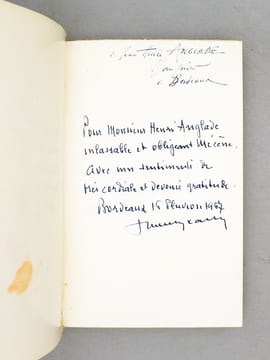 à ANGLADE
à Bordeaux
Pour Monsieur Henri Anglade
inlassable et obligeant Mécène.
Avec mon sentiment de
très cordiale et dévouée gratitude.
Bordeaux 1967